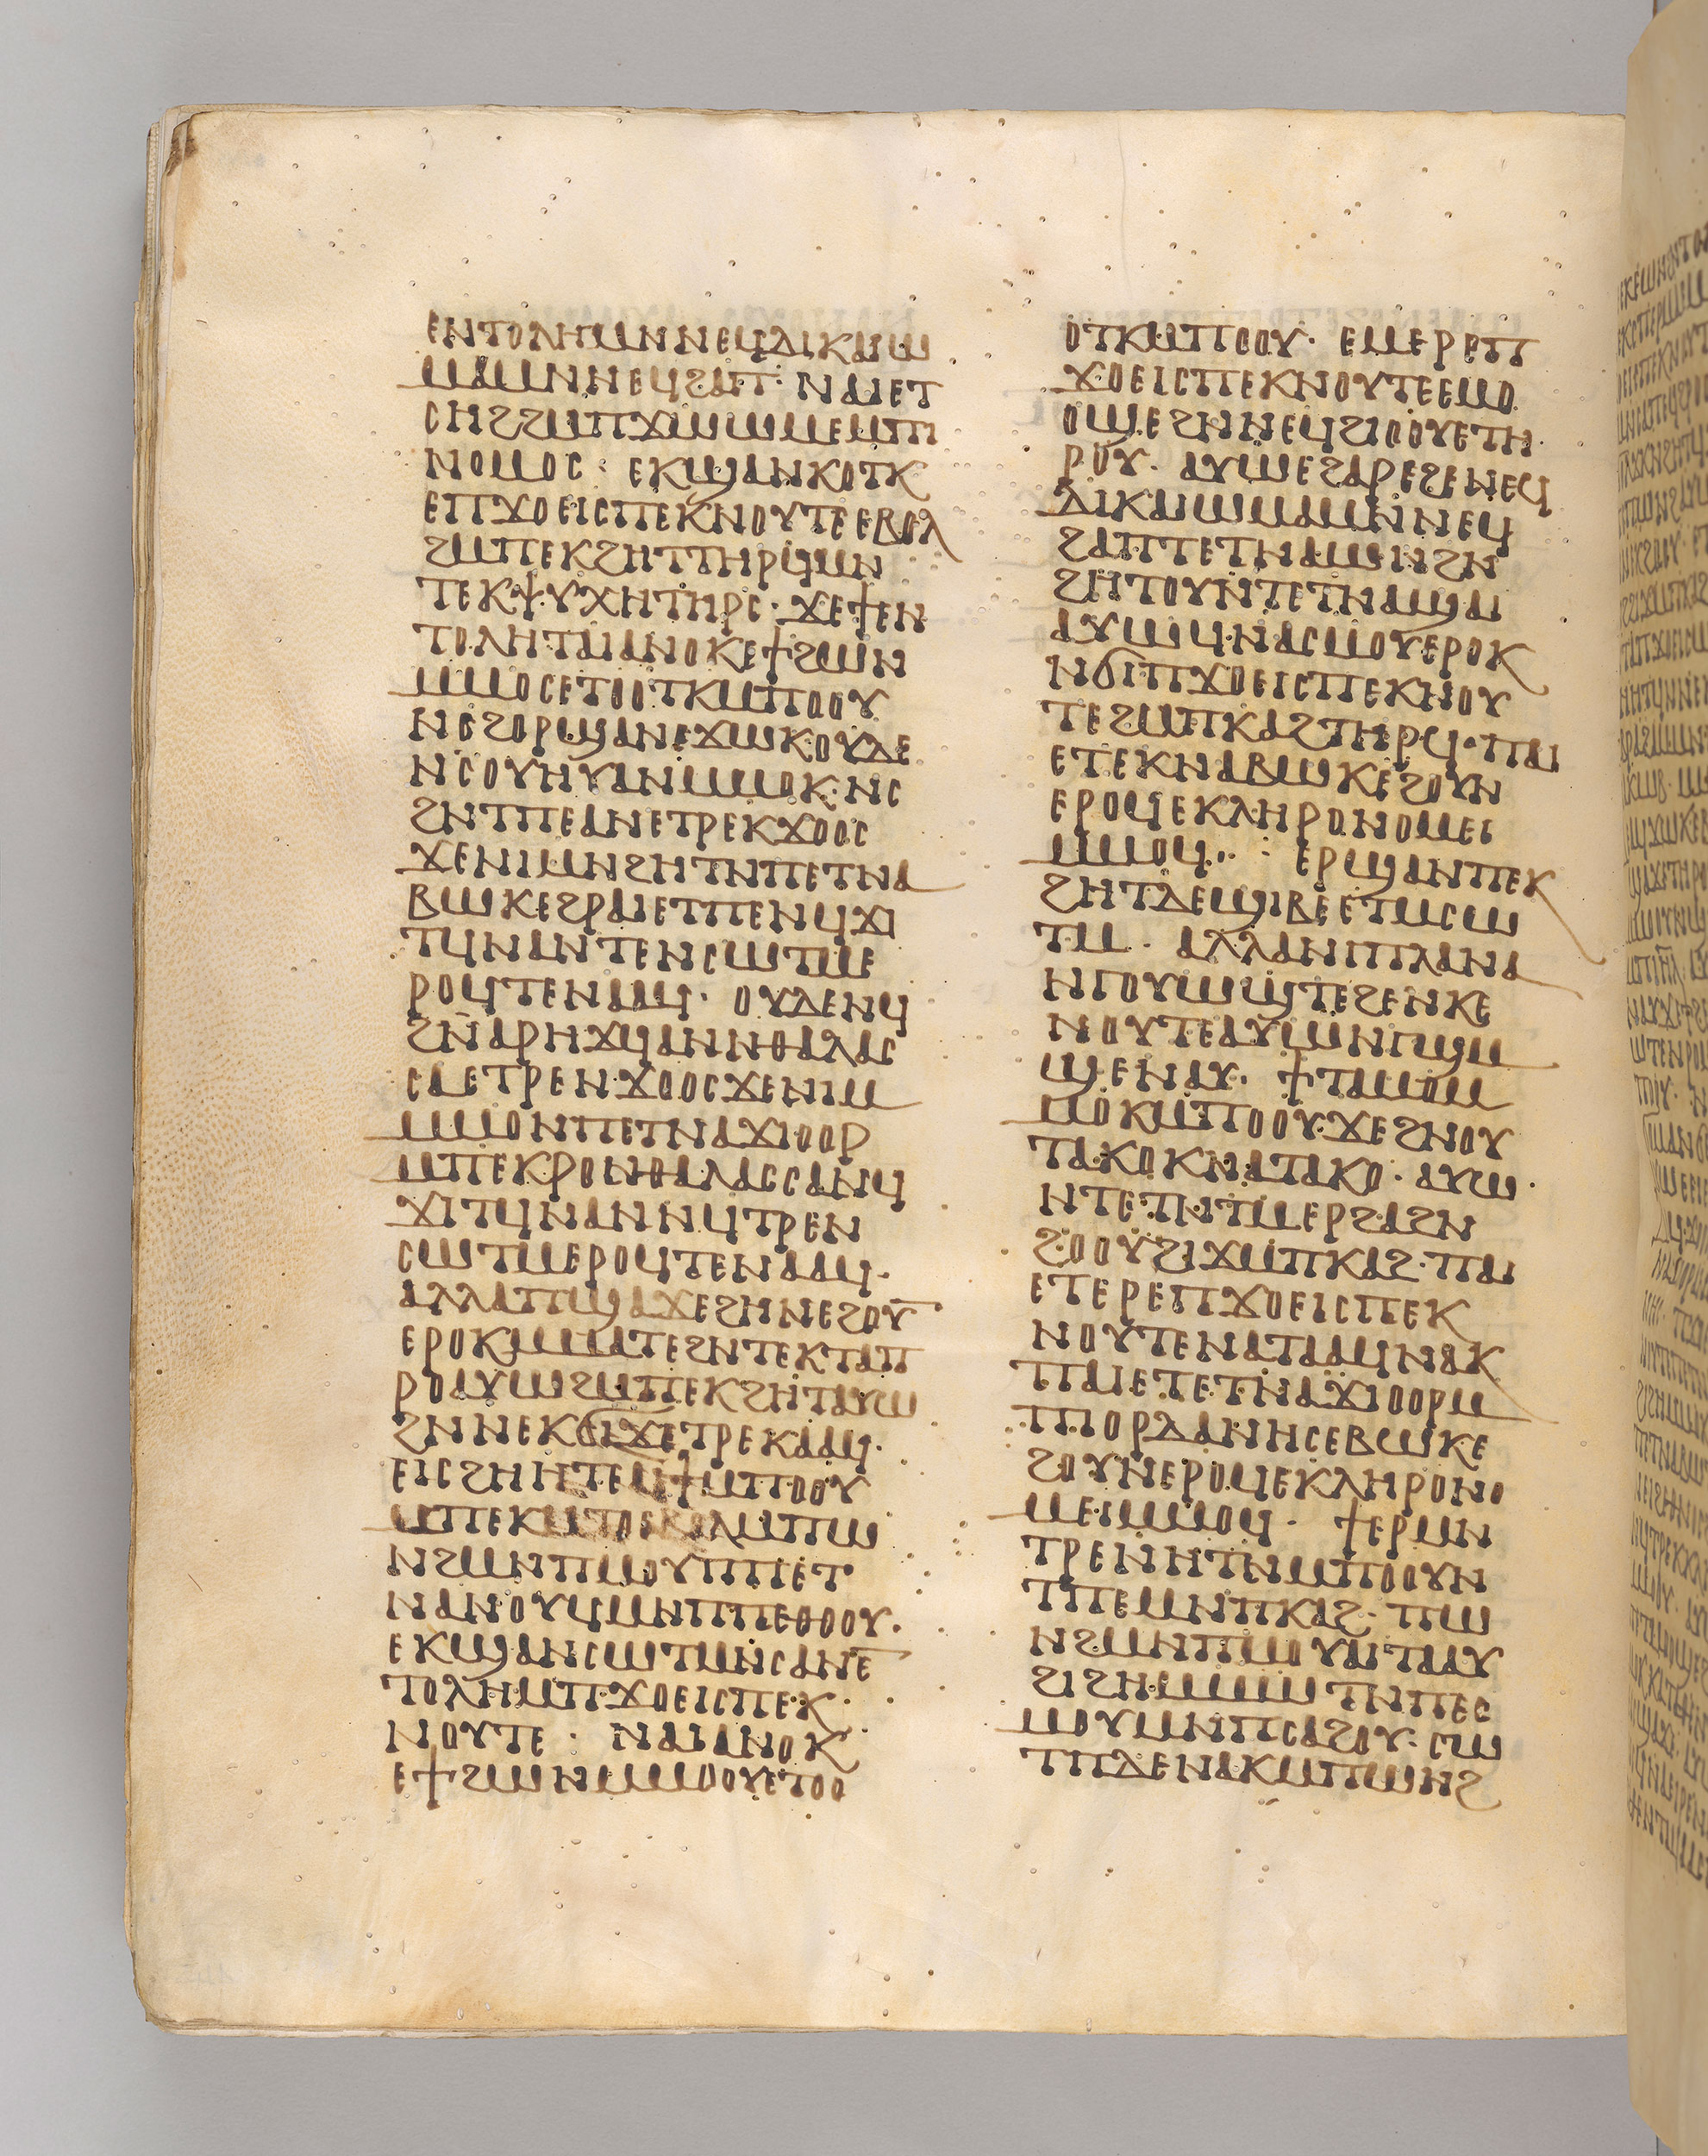 ⲉⲛⲧⲟⲗⲏⲙⲛⲛⲉϥⲇⲓⲕⲁⲓⲱ
ⲙⲁⲙⲛⲛⲉϥϩⲁⲡ· ⲛⲁⲓⲉⲧ
ⲥⲏϩϩⲙⲡϫⲱⲱⲙⲉⲙⲡⲓ
ⲛⲟⲙⲟⲥ : ⲉⲕϣⲁⲛⲕⲟⲧⲕ
ⲉⲡϫⲟⲉⲓⲥⲡⲉⲕⲛⲟⲩⲧⲉⲉⲃⲟⲗ
ϩⲙⲡⲉⲕϩⲏⲧⲧⲏⲣϥⲙⲛ
ⲧⲉⲕⲯⲩⲭⲏⲧⲏⲣⲥ· ϫⲉϯⲉⲛ
ⲧⲟⲗⲏⲧⲁⲓⲁⲛⲟⲕⲉϯϩⲱⲛ
ⲙⲙⲟⲥⲉⲧⲟⲟⲧⲕⲙⲡⲟⲟⲩ
ⲛⲥϩⲟⲣϣⲁⲛⲉϫⲱⲕⲟⲩⲇⲉ
ⲛⲥⲟⲩⲏⲩⲁⲛⲙⲙⲟⲕ·ⲛⲥ
ϩⲛⲧⲡⲉⲁⲛⲉⲧⲣⲉⲕϫⲟⲟⲥ
ϫⲉⲛⲓⲙⲛϩⲏⲧⲛⲡⲉⲧⲛⲁ
ⲃⲱⲕⲉϩⲣⲁⲓⲉⲧⲡⲉⲛϥϫⲓ
ⲧϥⲛⲁⲛⲧⲉⲛⲥⲱⲧⲙⲉ
ⲣⲟϥⲧⲉⲛⲁⲁϥ· ⲟⲩⲇⲉⲛϥ
ϩⲛⲁⲣⲏϫϥⲁⲛⲛⲑⲁⲗⲁⲥ
ⲥⲁⲉⲧⲣⲉⲛϫⲟⲟⲥϫⲉⲛⲓⲙ
ⲙⲙⲟⲛⲡⲉⲧⲛⲁϫⲓⲟⲟⲣ
ⲙⲡⲉⲕⲣⲟⲛⲑⲁⲗⲁⲥⲥⲁⲛϥ
ϫⲓⲧϥⲛⲁⲛⲛϥⲧⲣⲉⲛ
ⲥⲱⲧⲙⲉⲣⲟϥⲧⲉⲛⲁⲁϥ·
ⲁⲗⲗⲁⲡϣⲁϫⲉϩⲏⲛⲉϩⲟⲩ
ⲉⲣⲟⲕⲙⲙⲁⲧⲉϩⲛⲧⲉⲕⲧⲁⲡ
ⲣⲟⲁⲩⲱϩⲙⲡⲉⲕϩⲏⲧⲁⲩⲱ
ϩⲛⲛⲉⲕϭⲓϫⲉⲧⲣⲉⲕⲁⲁϥ·
ⲉⲓⲥϩⲏⲏⲧⲉⲉⲓϯⲙⲡⲟⲟⲩ
ⲙⲡⲉⲕⲙⲧⲟⲉⲃⲟⲗⲙⲡⲱ
ⲛϩⲙⲛⲡⲙⲟⲩⲡⲡⲉⲧ
ⲛⲁⲛⲟⲩϥⲙⲛⲡⲡⲉⲑⲟⲟⲩ·
ⲉⲕϣⲁⲛⲥⲱⲧⲙⲛⲥⲁⲛⲉ̅
ⲧⲟⲗⲏⲙⲡϫⲟⲉⲓⲥⲡⲉⲕ
ⲛⲟⲩⲧⲉ · ⲛⲁⲓⲁⲛⲟⲕ
ⲉϯϩⲱⲛⲙⲙⲟⲟⲩⲉⲧⲟⲟ
ⲟⲧⲕⲙⲡⲟⲟⲩ· ⲉⲙⲉⲣⲉⲡ
ϫⲟⲉⲓⲥⲡⲉⲕⲛⲟⲩⲧⲉⲉⲙⲟ
ⲟϣⲉϩⲛⲛⲉϥϩⲓⲟⲟⲩⲉⲧⲏ
ⲣⲟⲩ· ⲁⲩⲱⲉϩⲁⲣⲉϩⲉⲛⲉϥ
ⲇⲓⲕⲁⲓⲱⲙⲁⲙⲛⲛⲉϥ
ϩⲁⲡⲧⲉⲧⲛⲁⲱⲛϩⲛ
ϩⲏⲧⲟⲩⲛⲧⲉⲧⲛⲁϣⲁⲓ
ⲁⲩⲱϥⲛⲁⲥⲙⲟⲩⲉⲣⲟⲕ
ⲛϭⲓⲡϫⲟⲉⲓⲥⲡⲉⲕⲛⲟⲩ
ⲧⲉϩⲙⲡⲕⲁϩⲧⲏⲣϥ·ⲡⲁⲓ
ⲉⲧⲉⲕⲛⲁⲃⲱⲕⲉϩⲟⲩⲛ
ⲉⲣⲟϥⲉⲕⲗⲏⲣⲟⲛⲟⲙⲉⲓ
ⲙⲙⲟϥ·· : ⲉⲣϣⲁⲛⲡⲉⲕ
ϩⲏⲧⲇⲉϣⲓⲃⲉⲉⲧⲙⲥⲱ
ⲧⲙ · ⲁⲗⲗⲁⲛⲅⲡⲗⲁⲛⲁ
ⲛⲅⲟⲩⲱϣⲧⲉϩⲉⲛⲕⲉ
ⲛⲟⲩⲧⲉⲁⲩⲱⲛⲅϣⲙ
ϣⲉⲛⲁⲩ· ϯⲧⲁⲙⲟⲙ
ⲙⲟⲕⲙⲡⲟⲟⲩ·ϫⲉϩⲛⲟⲩ
ⲧⲁⲕⲟⲕⲛⲁⲧⲁⲕⲟ· ⲁⲩⲱ·
ⲛⲧⲉⲧⲛⲧⲙⲉⲣϩⲁϩⲛ
ϩⲟⲟⲩϩⲓϫⲙⲡⲕⲁϩ·ⲡⲁⲓ
ⲉⲧⲉⲣⲉⲡϫⲟⲉⲓⲥⲡⲉⲕ
ⲛⲟⲩⲧⲉⲛⲁⲧⲁⲁϥⲛⲁⲕ
ⲡⲁⲓⲉⲧⲉⲧⲛⲁϫⲓⲟⲟⲣⲙ
ⲡⲓⲟⲣⲇⲁⲛⲏⲥⲉⲃⲱⲕⲉ
ϩⲟⲩⲛⲉⲣⲟϥⲉⲕⲗⲏⲣⲟⲛⲟ
ⲙⲉⲓⲙⲙⲟϥ· ϯⲉⲣⲙⲛ
ⲧⲣⲉⲛⲏⲧⲛⲙⲡⲟⲟⲩⲛ
ⲧⲡⲉⲙⲛⲡⲕⲁϩ· ⲡⲱ
ⲛϩⲙⲛⲡⲙⲟⲩⲁⲓⲧⲁⲁⲩ
ϩⲓϩⲏⲙⲙⲱⲧⲛⲡⲉⲥ
ⲙⲟⲩⲙⲛⲡⲥⲁϩⲟⲩ· ⲥⲱ
ⲧⲡⲇⲉⲛⲁⲕⲙⲡⲱⲛϩ